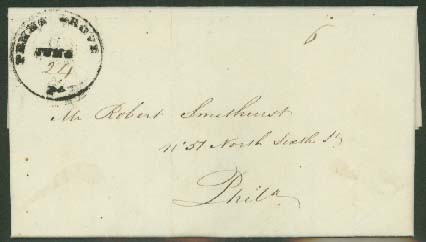 PENN'S GROVE
JUNE
24
Pa.
6
Mr Robert Smethurst
No 51 North Sixth St
Phila